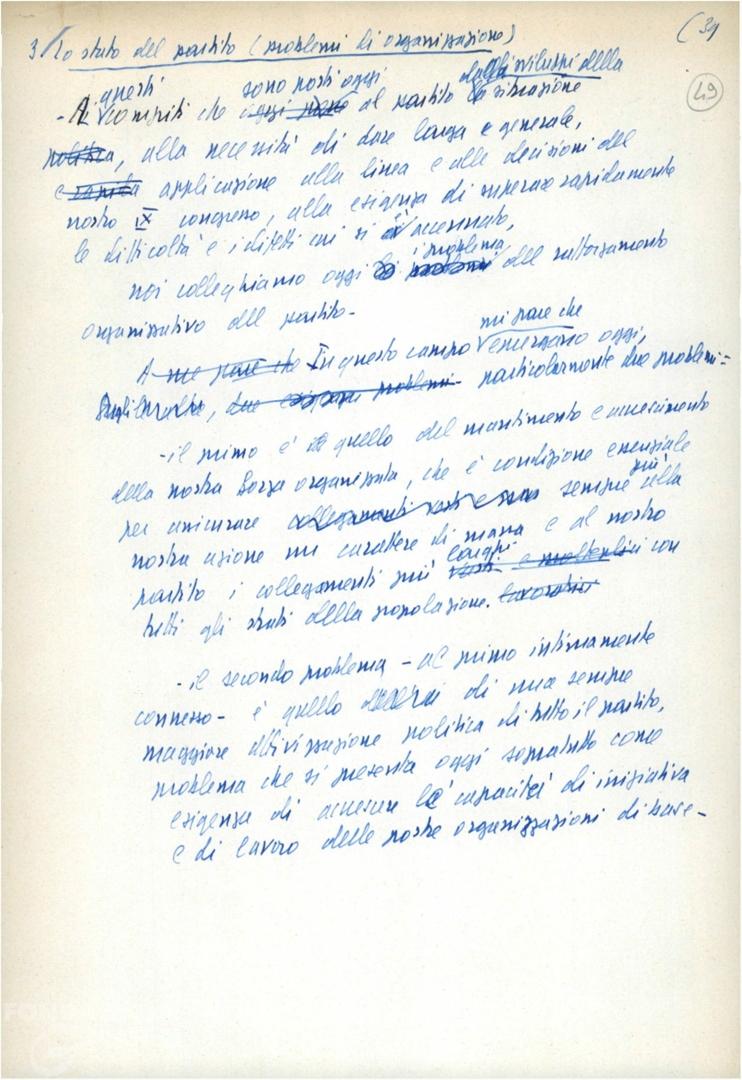 (39
49
3. Lo stato del partito (problemi di organizzazione)
questi sono posti oggi dallo sviluppo della
- Ai compiti che oggi pone al partito la situazione
politica, alla necessità di dare larga e generale,
e rapida applicazione alla linea e alle decisioni del
nostro IX congresso, alla esigenza di superare rapidamente
le difficoltà e i difetti cui si è accennato,
noi colleghiamo oggi i problema problemi del rafforzamento
organizzativo del partito-
mi pare che
A me pare che In questo campo emergano oggi,
due problemi particolarmente due problemi=
- il primo è quello del mantimento e accrescimento
della nostra forza organizzata, che è condizione essenziale
per assicurare collegamenti vasti e sempre più alla
nostra azione un carattere di massa e al nostro
partito i collegamenti più larghi vasti e molteplici con
tutti gli strati della popolazione. lavoratrice
- il secondo problema - al primo intimamente
connesso - è quello di una sempre
maggiore attivizzazione politica di tutto il partito,
problema che si presenta oggi sopratutto come
esigenza di accrescere la capacità di iniziativa
e di lavoro delle nostre organizzazioni di base-
FON